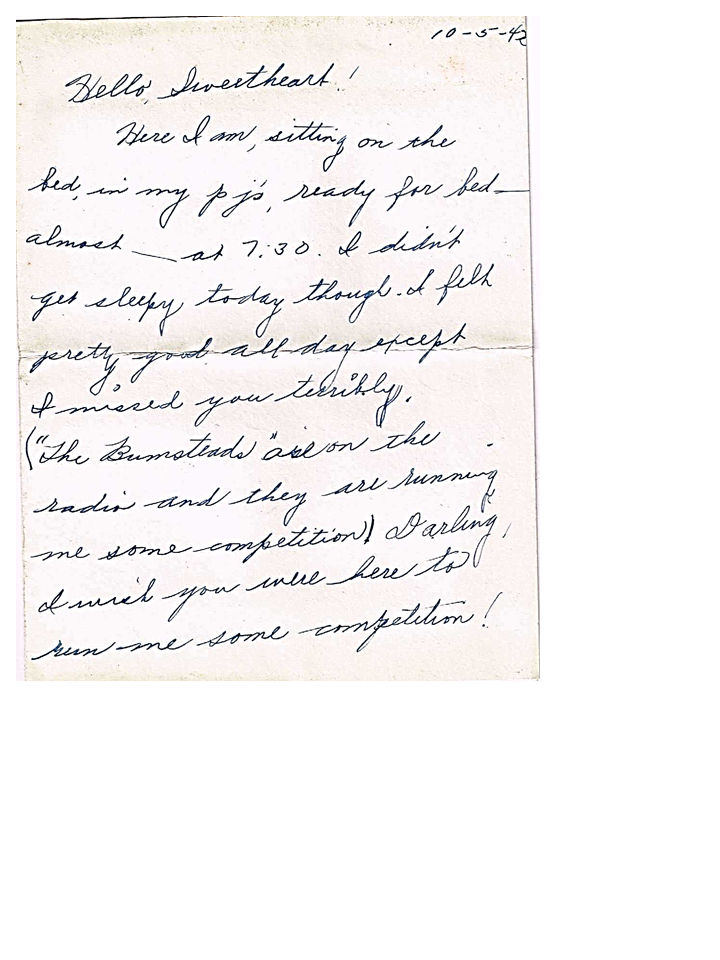 10-5-42
Hello, Sweetheart!
Here I am, sitting on the
bed, in my pj's, ready for bed—
almost — at 7:30. I didn't
get sleepy today though. I felt
pretty good all day except
I missed you terribly.
("The Bumsteads" are on the
radio and they are running
me some competition) Darling,
I wish you were here to
run me some competition!